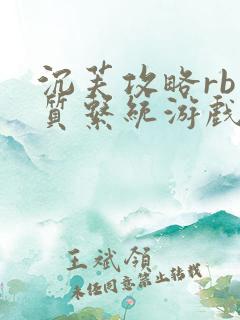 沉芙攻略rb
质系统游戏
王斌领
未经同意禁止转载